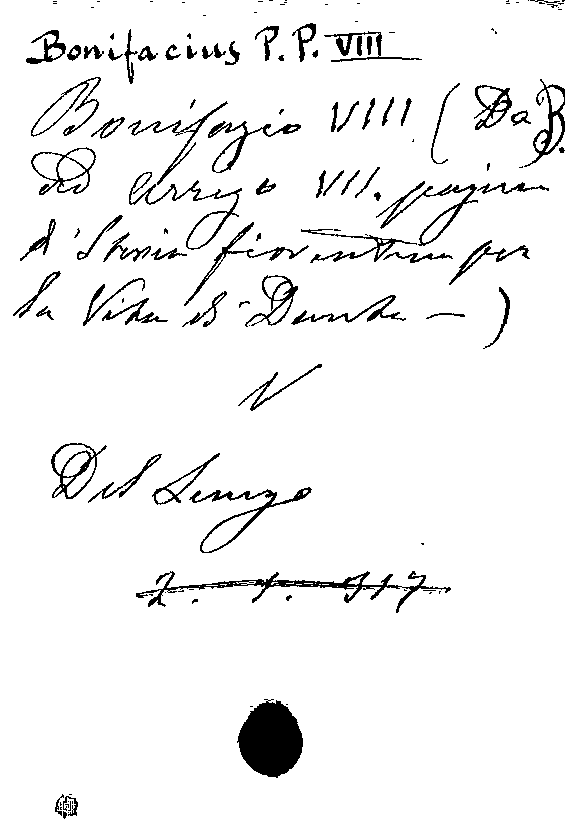 Bonifacius P. P. VIII
Bonifazio VIII ( Da B.
ad Arrigo VII. pagine
d'Storia fiorentina per
la Vita di Dante — )
V
Del Lungo
2. 1. 317